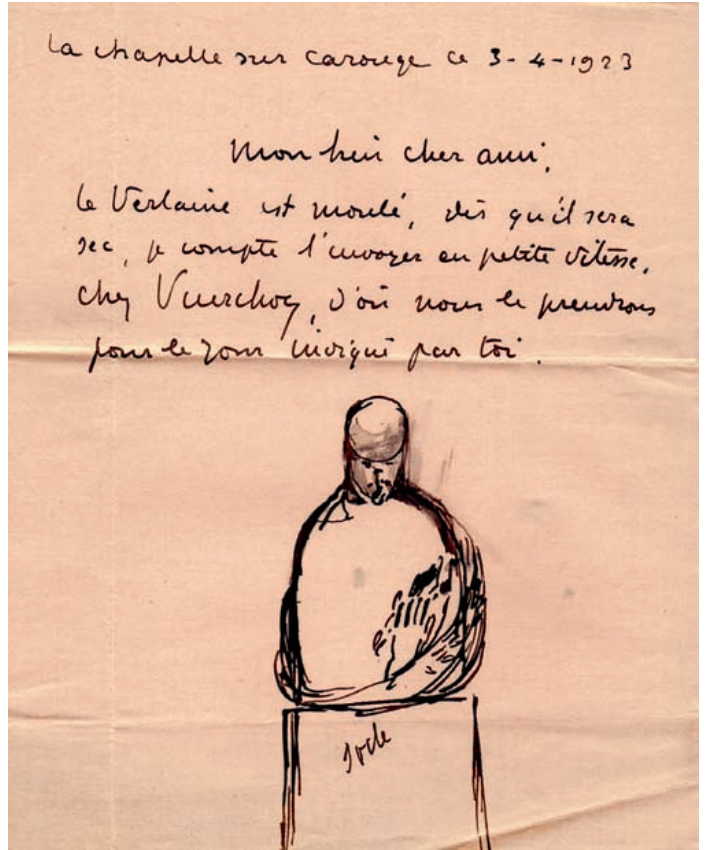 La chapelle sur Carouge ce 3-4-1923
Mon bien cher ami,
le Verlaine est moulé, dès qu'il sera
sec, je compte l'envoyer en petite vitesse,
chez d'où nous le prendrons
pour le jour indiqué par toi.
Socle